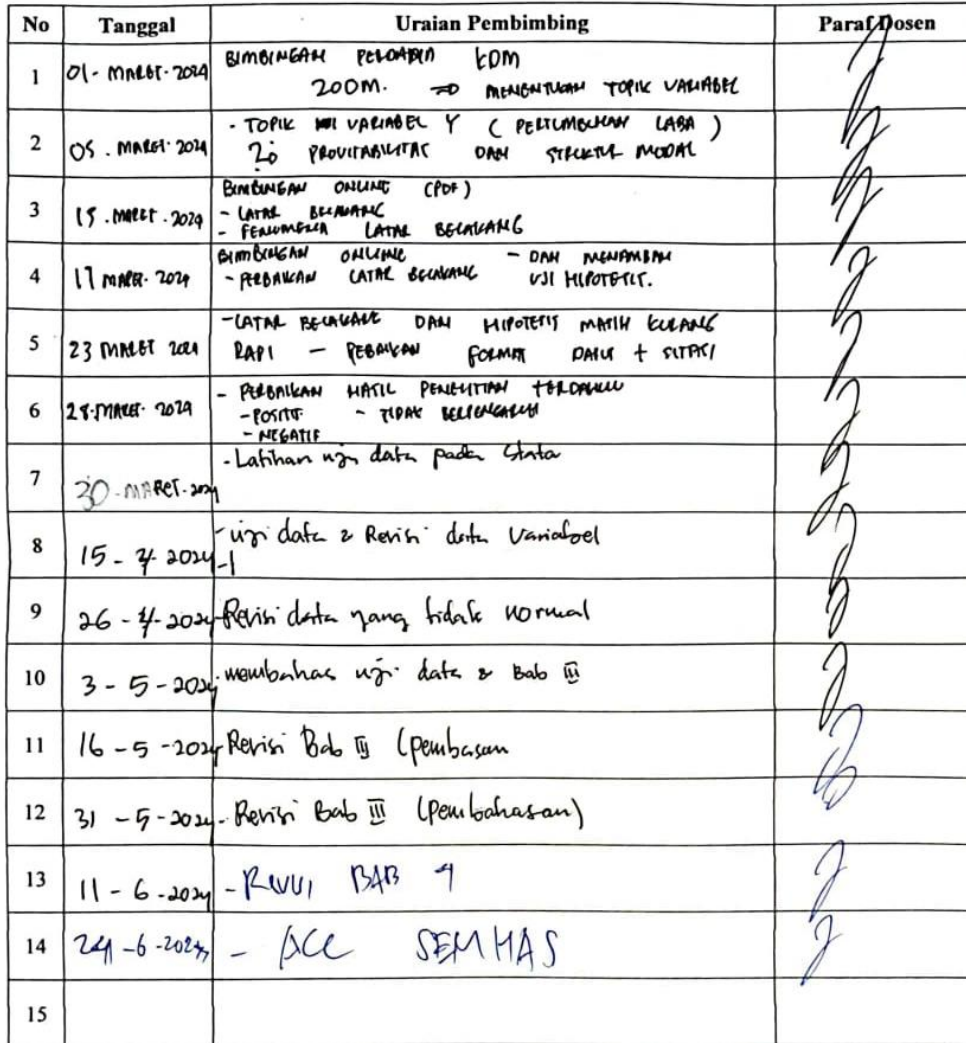 No Tanggal Uraian Pembimbing Paraf Dosen
1 01 - MARET - 2024 BIMBINGAN PERDANA
ZOOM. => MENENTUKAN TOPIK VARIABEL
2 05 . MARET . 2024 - TOPIK VARIABEL Y ( PERTUMBUHAN LABA )
PROVITABILITAS DAN STRUKTUR MODAL
3 15 . MARET . 2024 BIMBINGAN ONLINE (PDF)
- LATAR BELAKANG
- FENOMENA LATAR BELAKANG
4 17 MARET . 2024 BIMBINGAN ONLINE - DAN MENAMBAH
- PERBAIKAN LATAR BELAKANG UJI HIPOTETIS.
5 23 MARET 2024 - LATAR BELAKANG DAN HIPOTESIS MASIH KURANG
RAPI - PEBAIKAN FORMAT + SITASI
6 28 . MARET . 2024 - PERBAIKAN HASIL PENELITIAN TERDAHULU
- POSITIF - TIDAK BERPENGARUH
- NEGATIF
7 30 - MARET - 2024 - Latihan uji data pada Stata
8 15 - 4 - 2024 - uji data & Revisi data Variabel
9 26 - 4 - 2024 - Revisi data yang tidak normal
10 3 - 5 - 2024 - membahas uji data & Bab III
11 16 - 5 - 2024 - Revisi Bab (pembasan
12 31 - 5 - 2024 - Revisi Bab III (Pembahasan)
13 11 - 6 - 2024 - REVISI BAB 4
14 24 - 6 - 2024 - ACC SEMHAS
15